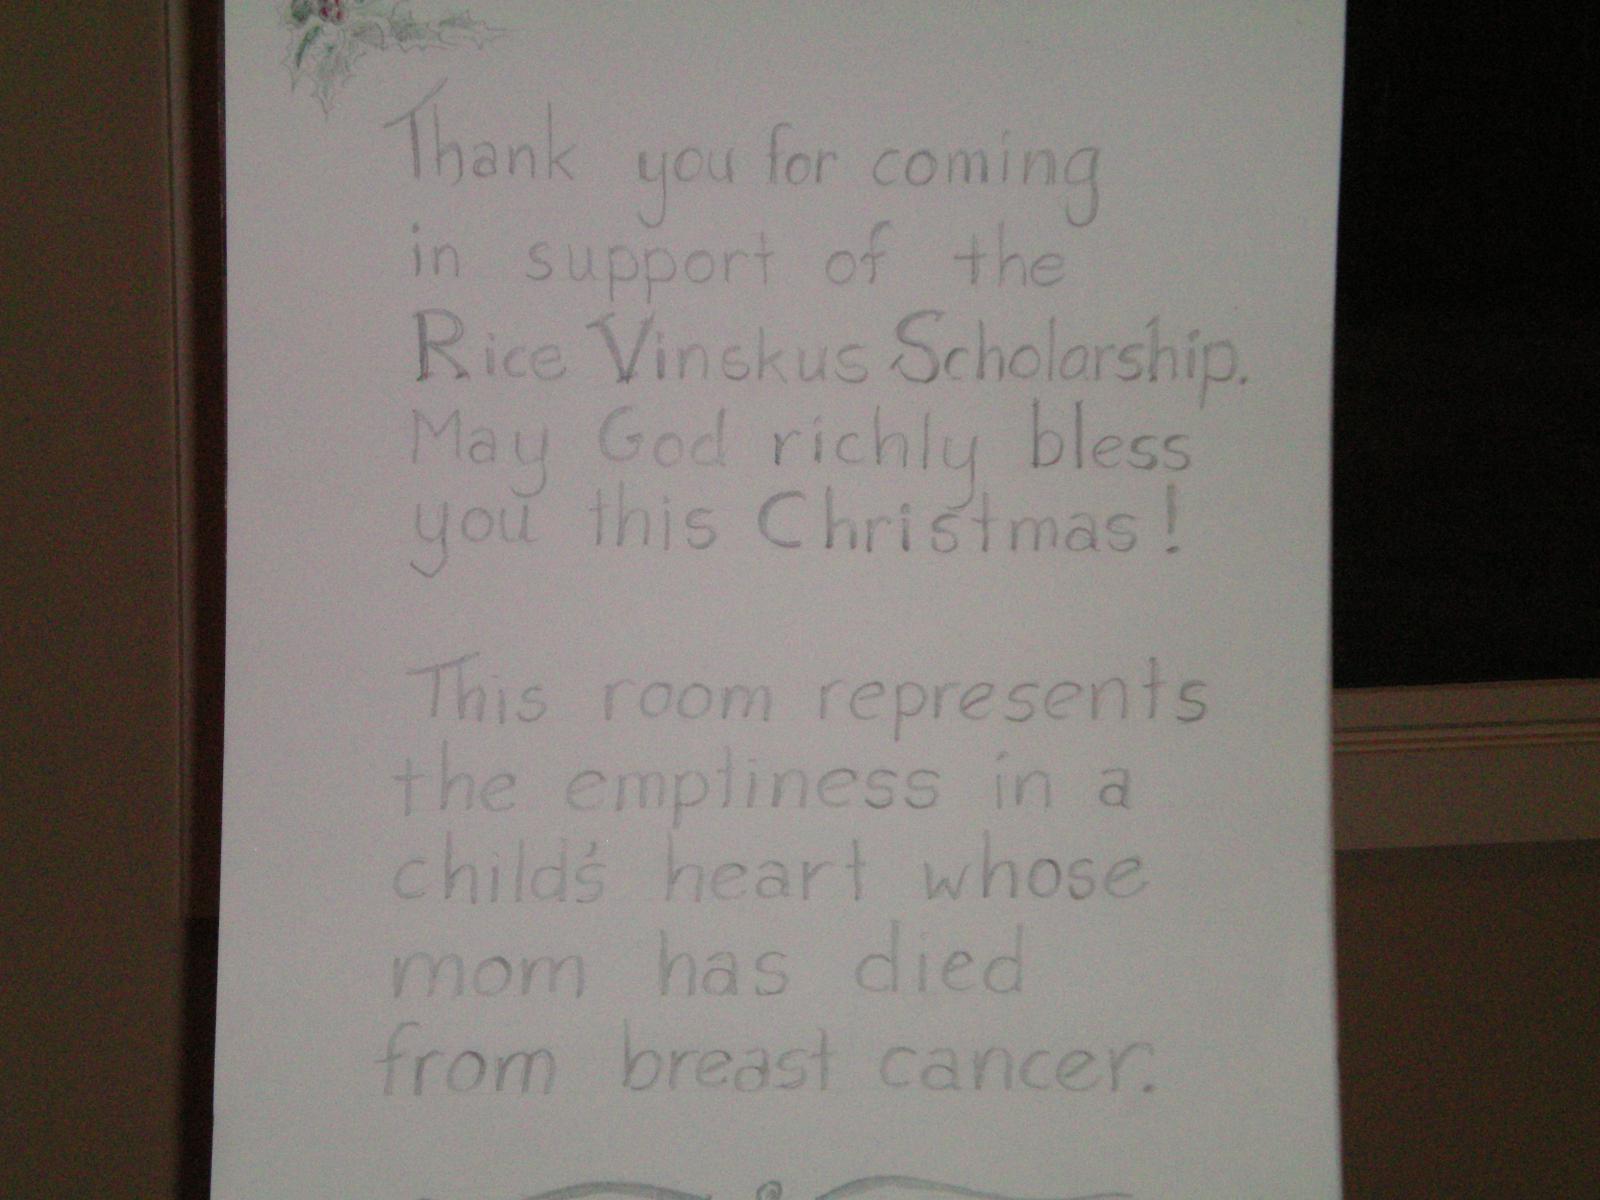 Thank you for coming
in support of the
Rice Vinskus Scholarship.
May God richly bless
you this Christmas!
This room represents
the emptiness in a
child's heart whose
mom has died
from breast cancer.